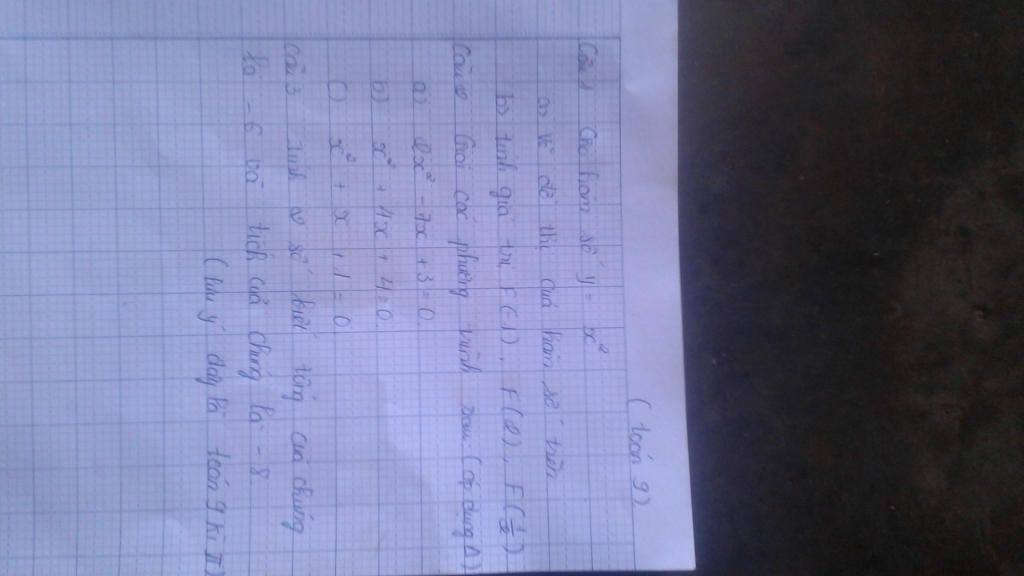 (toán 9)
Câu 1 Cho hàm số y = x²
a) Vẽ đồ thị của hàm số trên
b) tính giá trị F(1), F(2), F(1/2)
Câu 2 Giải các phương trình sau (áp dụng Δ)
a) 2x² - 7x + 3 = 0
b) x² + 4x + 4 = 0
c) x² + x + 1 = 0
Câu 3 tính 2 số biết tổng của chúng
là - 6 và tích của chúng là - 8
(lưu ý đây là toán 9 kì II)